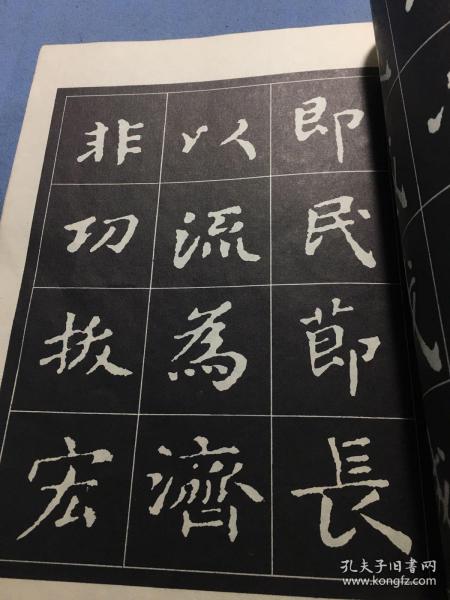 即民節長
以流為濟
非功拔宏
孔夫子旧书网
www.kongfz.com